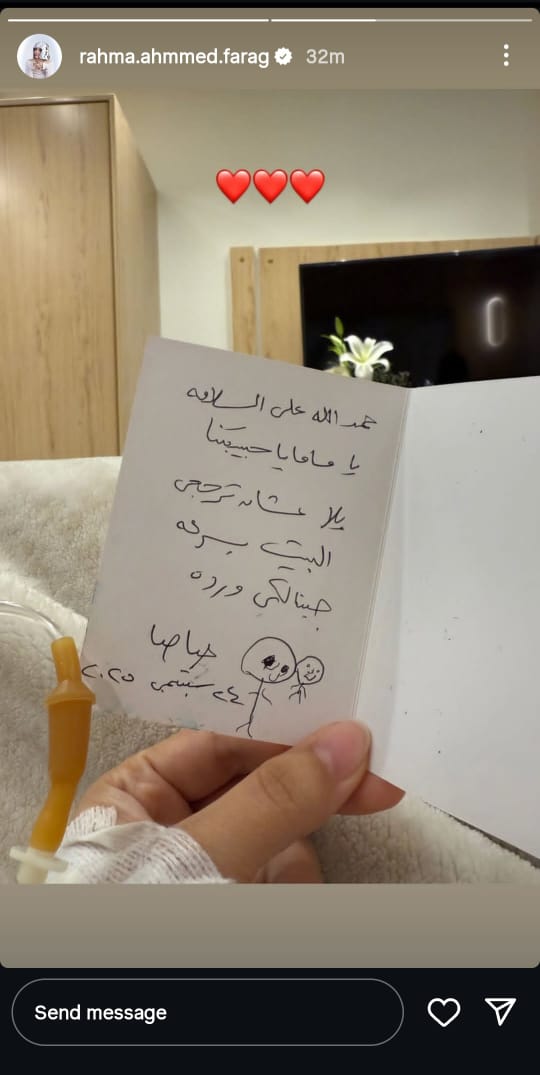 rahma.ahmmed.farag 32m
حمد الله على السلامه
يا ماما يا حبيبتنا
يلا عشان ترجعي
البيت بسرعه
جبنالكي ورده
٢٤ سبتمبر ٢٠٢٥
Send message